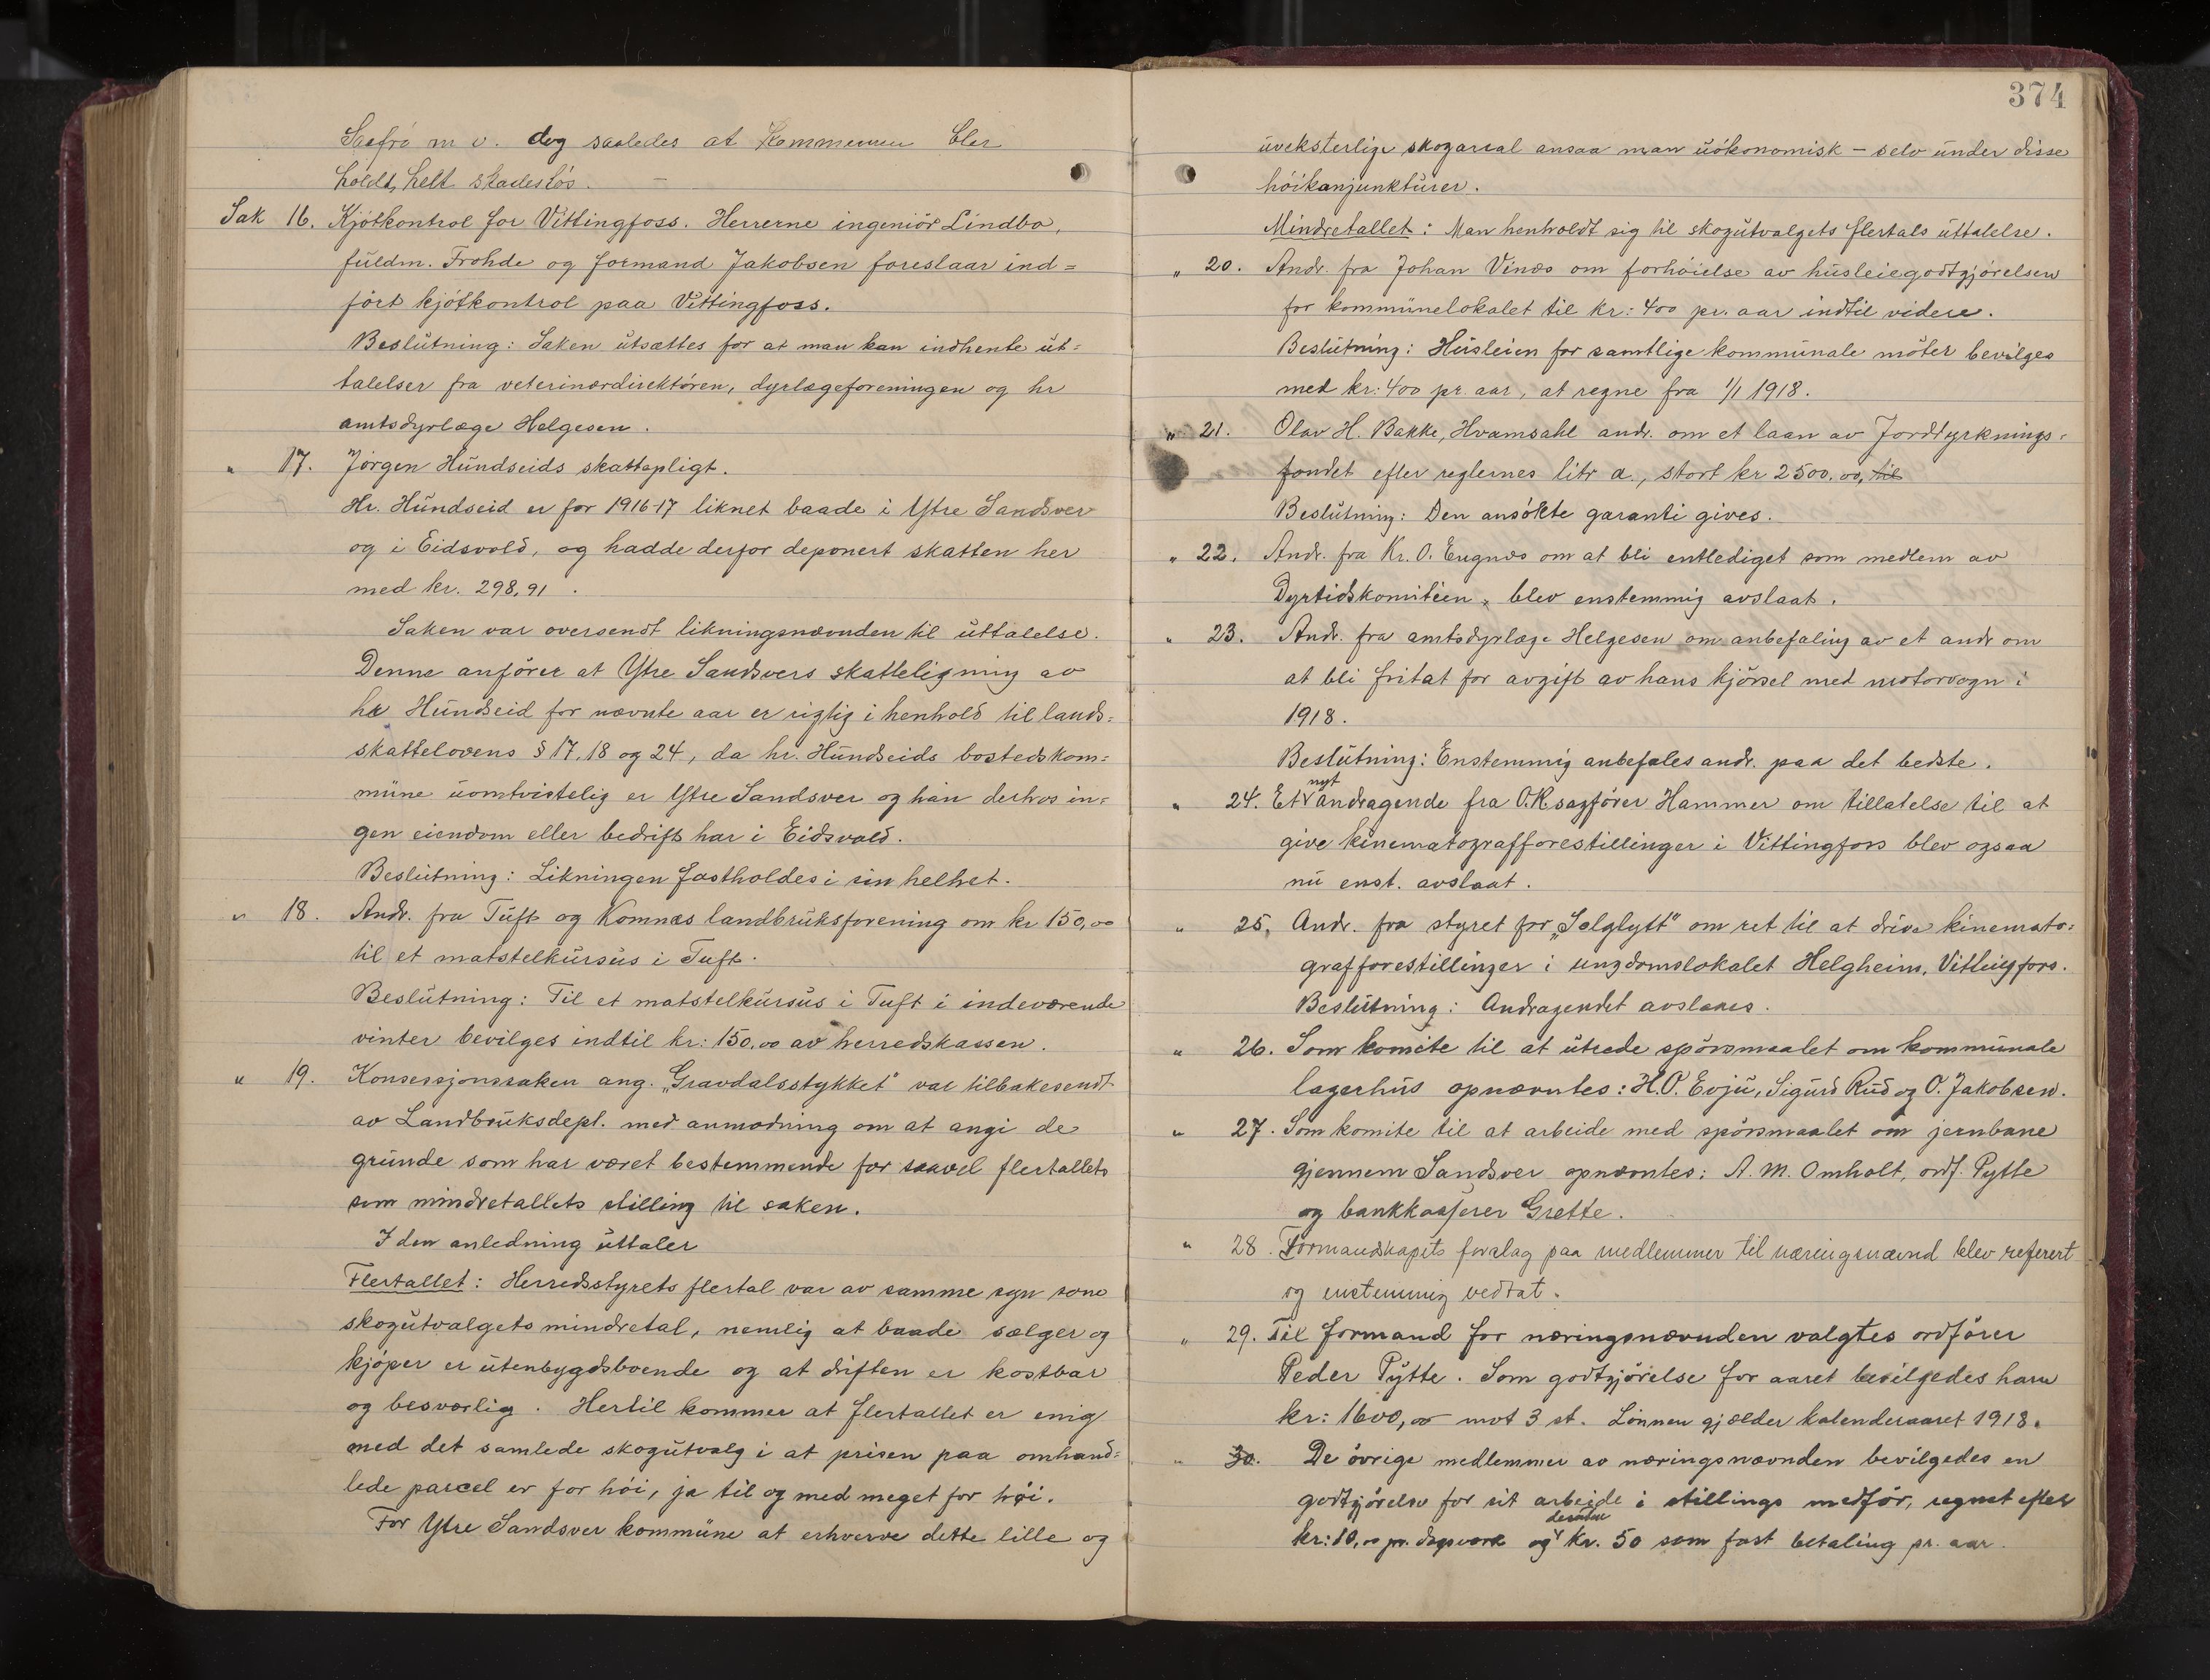 Saafrö m v. dog saaledes at Kommunen blir
holdt helt skadeslös. —
Sak 16. Kjötkontrol for Vittingfoss. Herrerne ingeniör Lindbo,
fuldm. Frohde og formand Jakobsen foreslaar ind=
ført kjötkontrol paa Vittingfoss.
Beslutning: Saken utsættes for at man kan indhente ut=
talelser fra veterinærdirektören, dyrlægeforeningen og hr
amtsdyrlæge Helgesen.
" 17. Jörgen Hundseids skattepligt.
Hr. Hundseid er for 1916-17 liknet baade i Ytre Sandsver
og i Eidsvold, og hadde derfor deponert skatten her
med kr. 298,91.
Saken var oversendt likningsnævnden til uttalelse.
Denne anförer at Ytre Sandsvers skatteligning av
hr Hundseid for nævnte aar er rigtig i henhold til lands=
skattelovens § 17, 18 og 24, da hr. Hundseids bostedskom=
mune uomtvistelig er Ytre Sandsver og han derhos in=
gen eiendom eller bedrift har i Eidsvold.
Beslutning: Likningen fastholdes i sin helhet.
" 18. Andr. fra Tuft og Komnæs landbruksforening om kr 150,00
til et matstelkursus i Tuft.
Beslutning: Til et matstelkursus i Tuft i indeværende
vinter bevilges indtil kr: 150,00 av herredskassen.
" 19. Konsessjonssaken ang. „Gravdalsstykket" var tilbakesendt
av Landbruksdept. med anmodning om at angi de
grunde som har været bestemmende for saavel flertallets
som mindretallets stilling til saken.
I den anledning uttaler
Flertallet: Herredsstyrets flertal var av samme syn som
skogutvalgets mindretal, nemlig at baade sælger og
kjöper er utenbygdsboende og at driften er kostbar
og besværlig. Hertil kommer at flertallet er enig
med det samlede skogutvalg i at prisen paa omhand=
lede parcel er for höi, ja til og med meget for höi.
For Ytre Sandsver kommune at erhverve dette lille og
374
uveksterlige skogareal ansaa man uökonomisk – selv under disse
höikonjunkturer.
Mindretallet: Man henholdt sig til skogutvalgets flertals uttalelse.
" 20. Andr. fra Johan Vinæs om forhöielse av husleiegodtgjörelsen
for kommunelokalet til kr: 400 pr. aar indtil videre.
Beslutning: Husleien for samtlige kommunale möter bevilges
med kr: 400 pr aar, at regne fra 1/1 1918.
" 21. Olav H. Bakke, Hvamsahl andr. om et laan av Jorddyrknings=
fondet efter reglernes litr a., stort kr 2500.00, til
Beslutning: Den ansökte garanti gives.
" 22. Andr. fra Kr. O. Engnæs om at bli entlediget som medlem av
Dyrtidskomitéen, blev enstemmig avslaat.
" 23. Andr. fra amtsdyrlæge Helgesen om anbefaling av et andr om
at bli fritat for avgift av hans kjörsel med motorvogn i
1918.
Beslutning: Enstemmig anbefales andr. paa det bedste.
" 24. Et nyt andragende fra O.R.sagförer Hammer om tillatelse til at
give kinematografforestillinger i Vittingfoss blev ogsaa
nu enst. avslaat.
" 25. Andr. fra styret for „Solglytt" om ret til at drive kinemato=
grafforestillinger i ungdomslokalet Helgheim, Vittingfoss.
Beslutning: Andragendet avslaaes.
" 26. Som komite til at utrede spörsmaalet om kommunale
lagerhus opnævntes: H.O. Evju, Sigurd Rud og O. Jakobsen.
" 27. Som komite til at arbeide med spörsmaalet om jernbane
gjennem Sandsver opnævntes: A. M. Omholt, ordf. Pytte
og bankkasserer Grette.
" 28. Formandskapets forslag paa medlemmer til næringsnævnd blev referert
og enstemmig vedtat.
" 29. Til formand for næringsnævnden valgtes ordförer
Peder Pytte. Som godtgjörelse for aaret bevilgedes ham
kr: 1600,00 mot 3 st. Lönnen gjælder kalenderaaret 1918.
" 30. De övrige medlemmer av næringsnævnden bevilgedes en
godtgjörelse for sit arbeide i stillings medför, regnet efter
kr: 10,00 pr. dagsverk og desuden kr. 50 som fast betaling pr. aar.